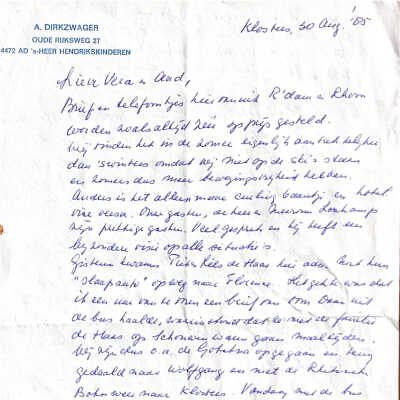 A. DIRKZWAGER
OUDE RIJKSWEG 27
4472 AD 's-HEER HENDRIKSKINDEREN
Klosters, 30 Aug. '85
Lieve Vera en Aad,
Brief en telefoontjes hier vanuit R'dam en Rhoon
worden zoals altijd zéér op prijs gesteld.
Wij vinden het in de zomer eigenlijk aantrekkelijker
dan 's winters omdat wij niet op de ski's staan
en zomers dus meer bewegingsvrijheid hebben.
Anders is het alleen maar curling baantje en hotel
vice versa. Onze gasten, de heer en Mevrouw
zijn prettige gasten. Veel gesprek en hij heeft een
bijzondere visie op alle situaties.
Gisteren kwamen de Haas hier aan
"slaapauto" op weg naar Florence. Het gekke was dat
ik een uur van te voren een brief van
de bus haalde, waarin stond dat ze met de familie
de Haas op Schonauwen gaan maaltijden.
Wij zijn dus o.a. de Gotschna opgegaan en terug
gedaald naar Wolfgang en met de Rhätische
Bahn weer naar Klosters. Vandaag met de bus